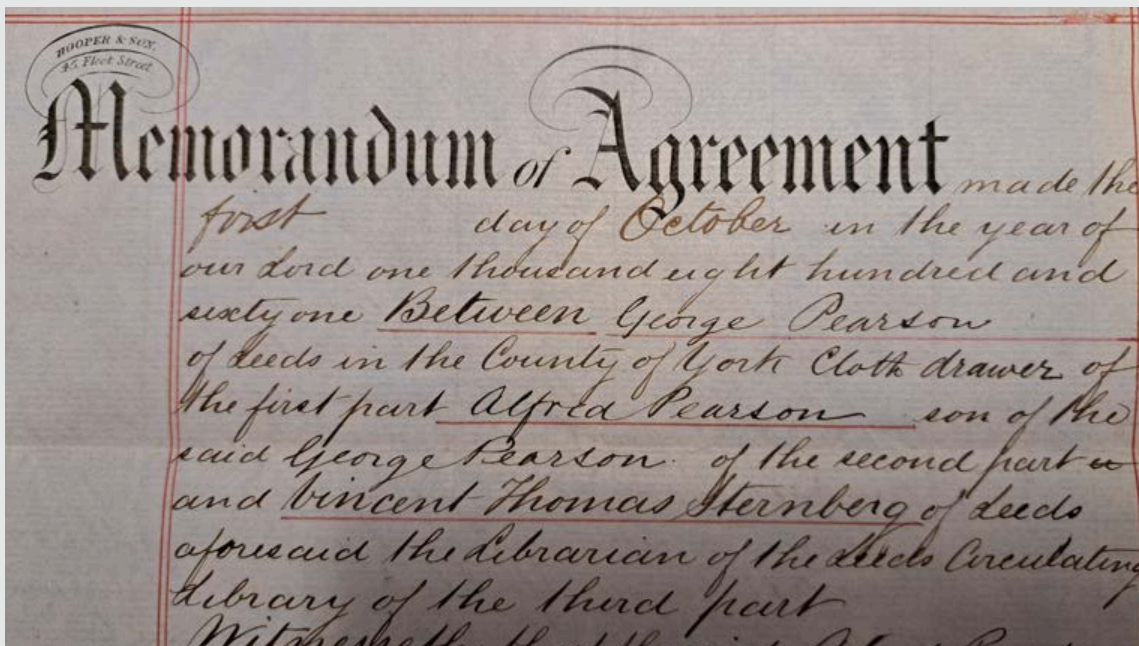 HOOPER & SON,
45, Fleet Street
Memorandum of Agreement made the
first day of October in the year of
our Lord one thousand eight hundred and
sixty one Between George Pearson
of Leeds in the County of York Cloth drawer of
the first part Alfred Pearson son of the
said George Pearson of the second part
and Vincent Thomas Sternberg of Leeds
aforesaid the Librarian of the Leeds Circulating
Library of the third part
Witnesseth that the said Alfred